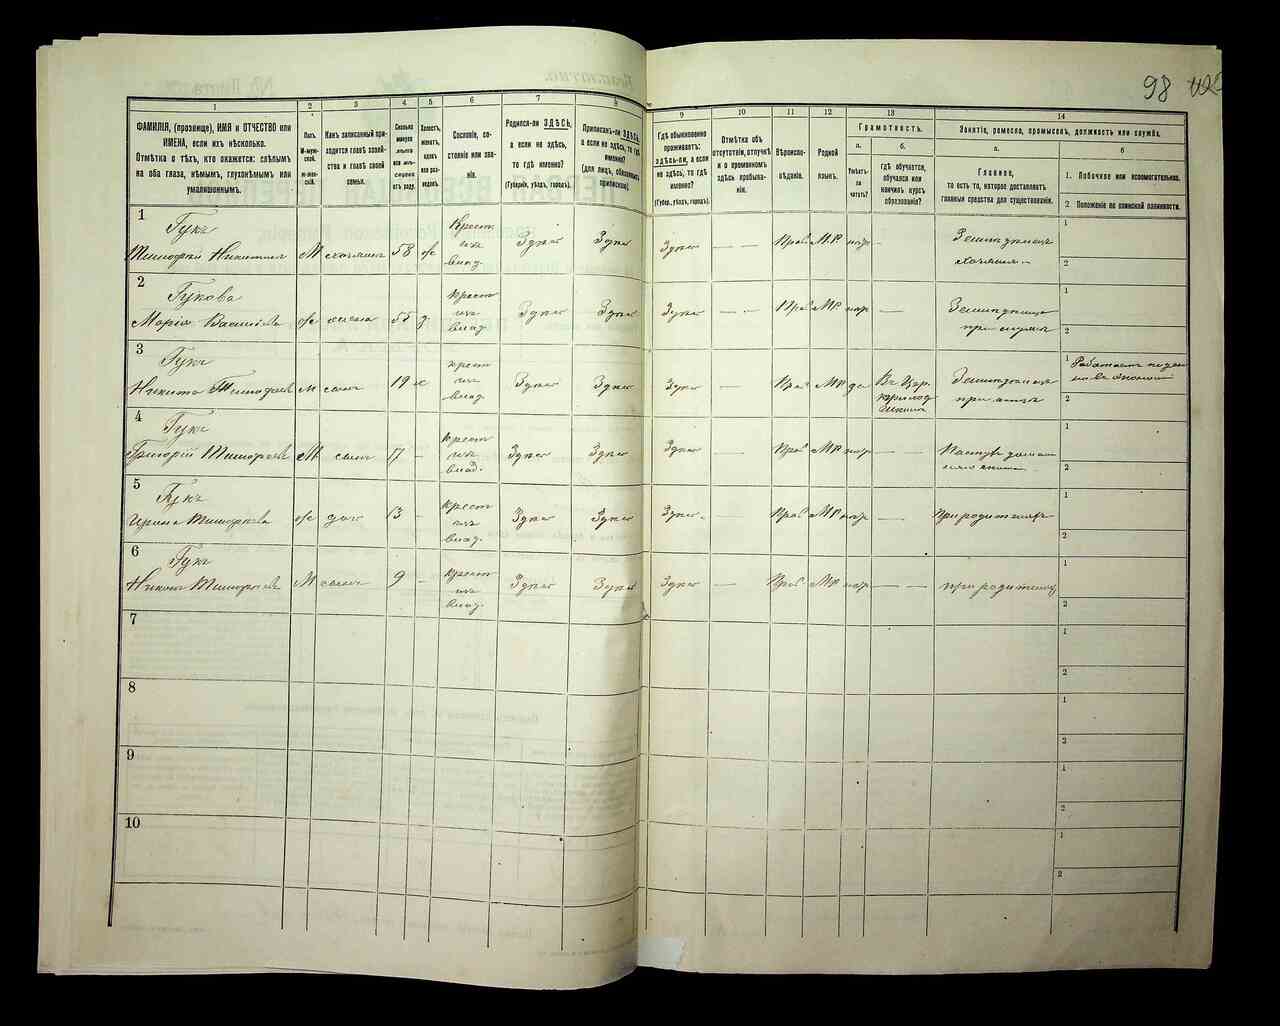 98
1
2
3
4
5
6
7
8
9
10
11
12
13
14
ФАМИЛІЯ, (прозвище), ИМЯ и ОТЧЕСТВО или
ИМЕНА, если ихъ нѣсколько.
Отмѣтка о тѣхъ, кто окажется: слѣпымъ
на оба глаза, нѣмымъ, глухонѣмымъ или
умалишоннымъ.
Полъ.
М-муж-
ской.
Ж-жен-
скій.
Какъ записанный при-
ходится главѣ хозяй-
ства и главѣ своей
семьи.
Сколько
минуло
лѣтъ
или мѣ-
сяцевъ
отъ роду.
Холостъ,
женатъ,
вдовъ
или раз-
веденъ.
Сословіе, со-
стояніе или зва-
ніе.
Родился-ли ЗДѢСЬ,
а если не здѣсь,
то гдѣ именно?
(Губернія, уѣздъ, городъ).
Приписанъ-ли ЗДѢСЬ,
а если не здѣсь, то гдѣ
именно?
(для лицъ, обязанныхъ
припискою).
Гдѣ обыкновенно
проживаетъ:
здѣсь-ли, а если
не здѣсь, то гдѣ
именно?
(Губер., уѣздъ, городъ).
Отмѣтка объ
отсутствіи, отлучкѣ
и о временномъ
здѣсь пребыва-
ніи.
Вѣроиспо-
вѣданіе.
Родной
языкъ.
Грамотность.
а.
Умѣетъ-
ли
читать?
б.
гдѣ обучается,
обучался или
кончилъ курсъ
образованія?
Занятіе, ремесло, промыселъ, должность или служба.
а.
Главное,
то есть то, которое доставляетъ
главныя средства для существованія.
б
1. Побочное или вспомогательное.
2. Положеніе по воинской повинности.
1
Гукъ
Тимофей Никитинъ
М
хозяинъ
58
ж
Крест.
изъ
влад.
Здѣсь
Здѣсь
Здѣсь
—
Прав
М.Р.
нѣт
-
Земледѣлецъ
хозяинъ
1
2
2
Гукова
Марія Васильева
ж
жена
55
з
крест
изъ
влад.
Здѣсь
Здѣсь
Здѣсь
—
Прав
М.Р.
нѣт
—
Земледѣлица
при мужѣ
1
2
3
Гукъ
Никита Тимофеев
М
сынъ
19
х
крест
изъ
влад
Здѣсь
Здѣсь
Здѣсь
—
Прав
М.Р.
да
Въ Цер.
приход
школѣ
Земледѣлецъ
при отцѣ
1
2
4
Гукъ
Григорій Тимофеев
М
сынъ
17
-
крест
изъ
влад.
Здѣсь
Здѣсь
Здѣсь
—
Прав
М.Р.
нѣт
—
Пастухъ домаш
няго скота
1
2
5
Гукъ
Ирина Тимофеева
ж
доч
13
-
крест
изъ
влад.
Здѣсь
Здѣсь
Здѣсь
—
Прав
М.Р.
нѣт
—
При родителяхъ
1
2
6
Гукъ
Никонъ Тимофеев
М
сынъ
9
-
крест
изъ
влад.
Здѣсь
Здѣсь
Здѣсь
—
Прав
М.Р.
нѣт
—
при родителяхъ
1
2
7
1
2
8
1
2
9
1
2
10
1
2